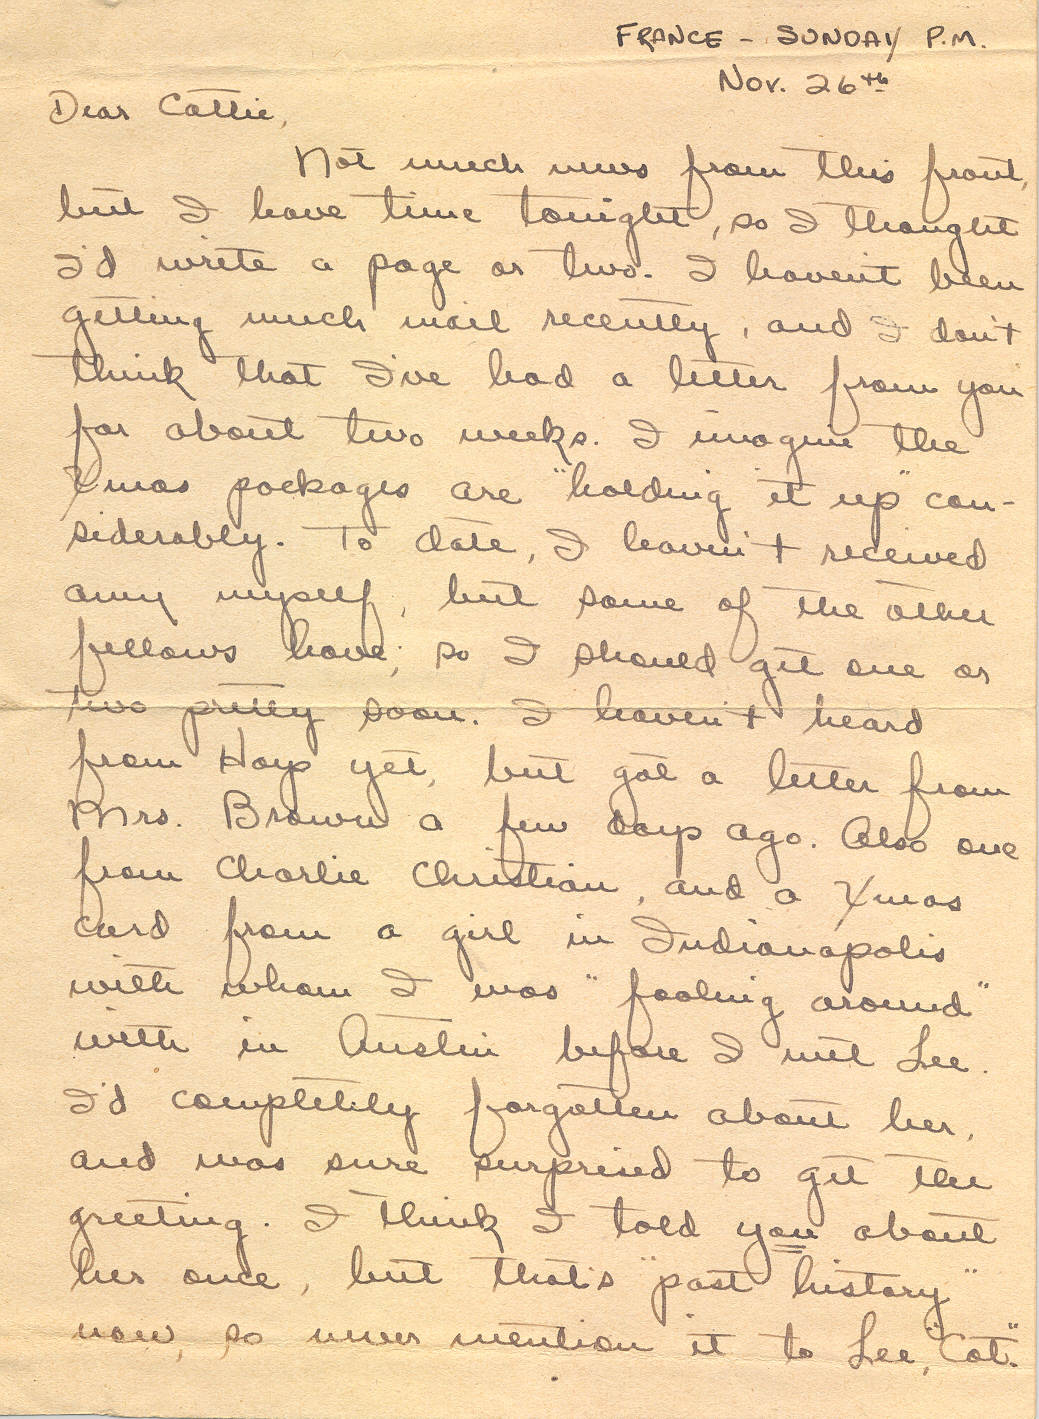 FRANCE - SUNDAY P.M.
Nov. 26th
Dear Cattie,
Not much news from this front,
but I have time tonight, so I thought
I'd write a page or two. I haven't been
getting much mail recently, and I don't
think that I've had a letter from you
for about two weeks. I imagine the
Xmas packages are "holding it up" con-
siderably. To date, I haven't received
any myself, but some of the other
fellows have; so I should get one or
two pretty soon. I haven't heard
from Hays yet, but got a letter from
Mrs. Brown a few days ago. Also one
from Charlie Christian, and a Xmas
card from a girl in Indianapolis
with whom I was "fooling around"
with in Austin before I met Lee.
I'd completely forgotten about her,
and was sure surprised to get the
greeting. I think I told you about
her once, but that's "past history"
now, so never mention it to Lee, "Cat".